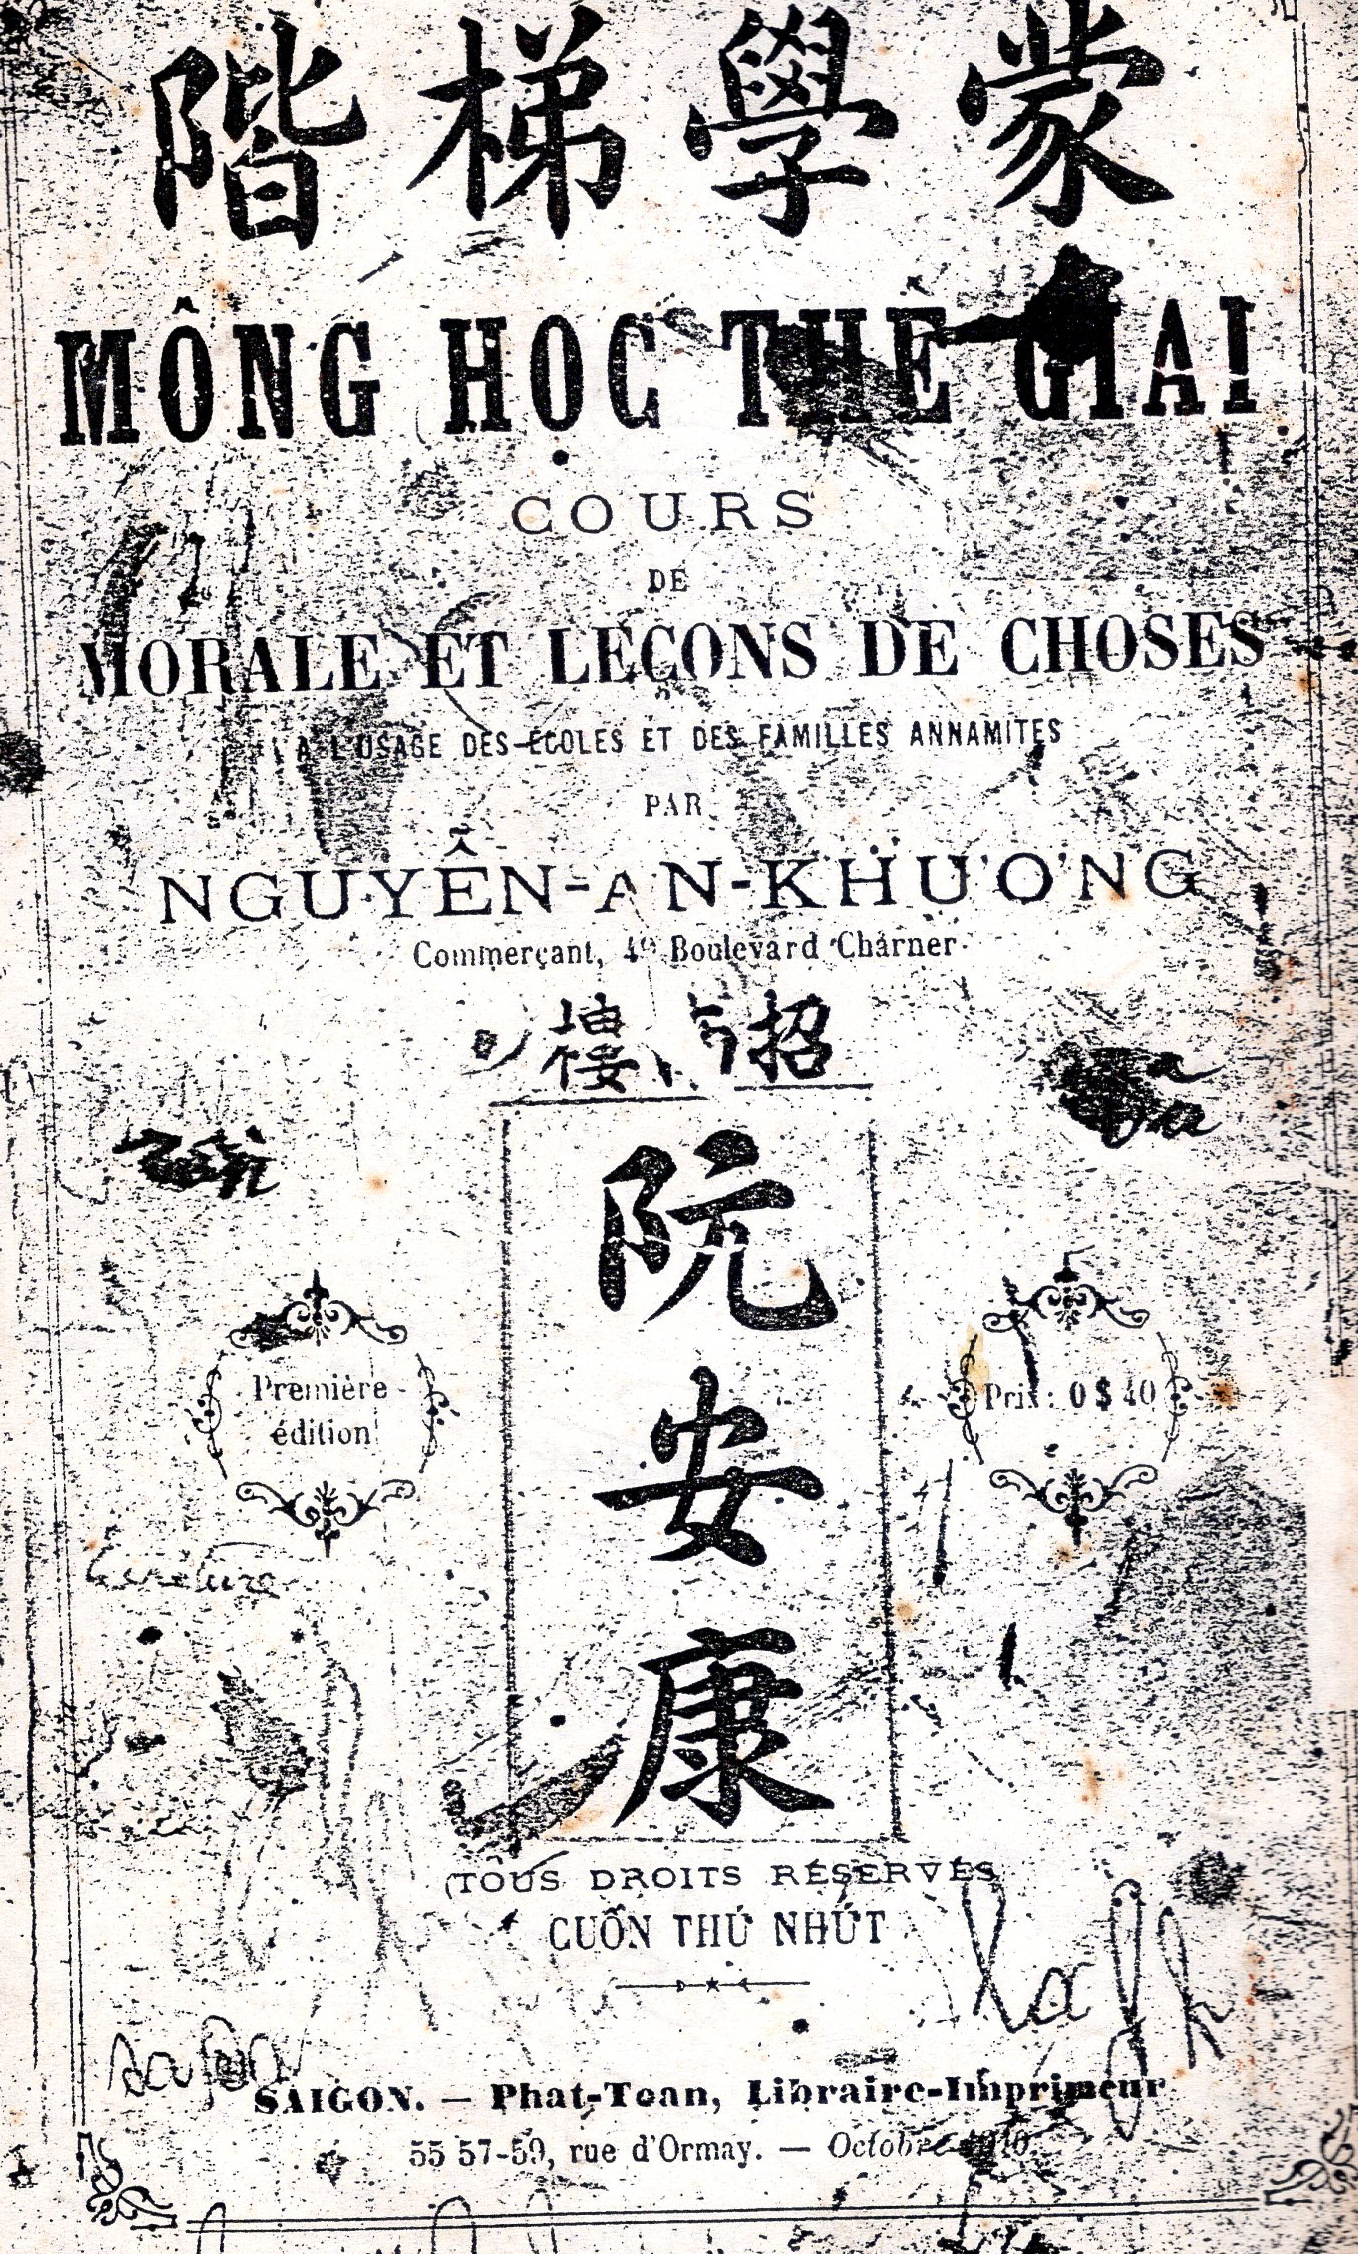 階梯學蒙
MÔNG HỌC THÊ GIAI
COURS
DE
MORALE ET LEÇONS DE CHOSES
A L'USAGE DES ÉCOLES ET DES FAMILLES ANNAMITES
PAR
NGUYỄN-AN-KHƯƠNG
Commerçant, Boulevard Charner
樓 招
阮
安
康
Première
édition
Prix: 0 $ 40
TOUS DROITS RÉSERVÉS
CUỐN THỨ NHỨT
SAIGON. — Phat-Toan, Libraire-Imprimeur
55 57-59, rue d'Ormay. — Octobre